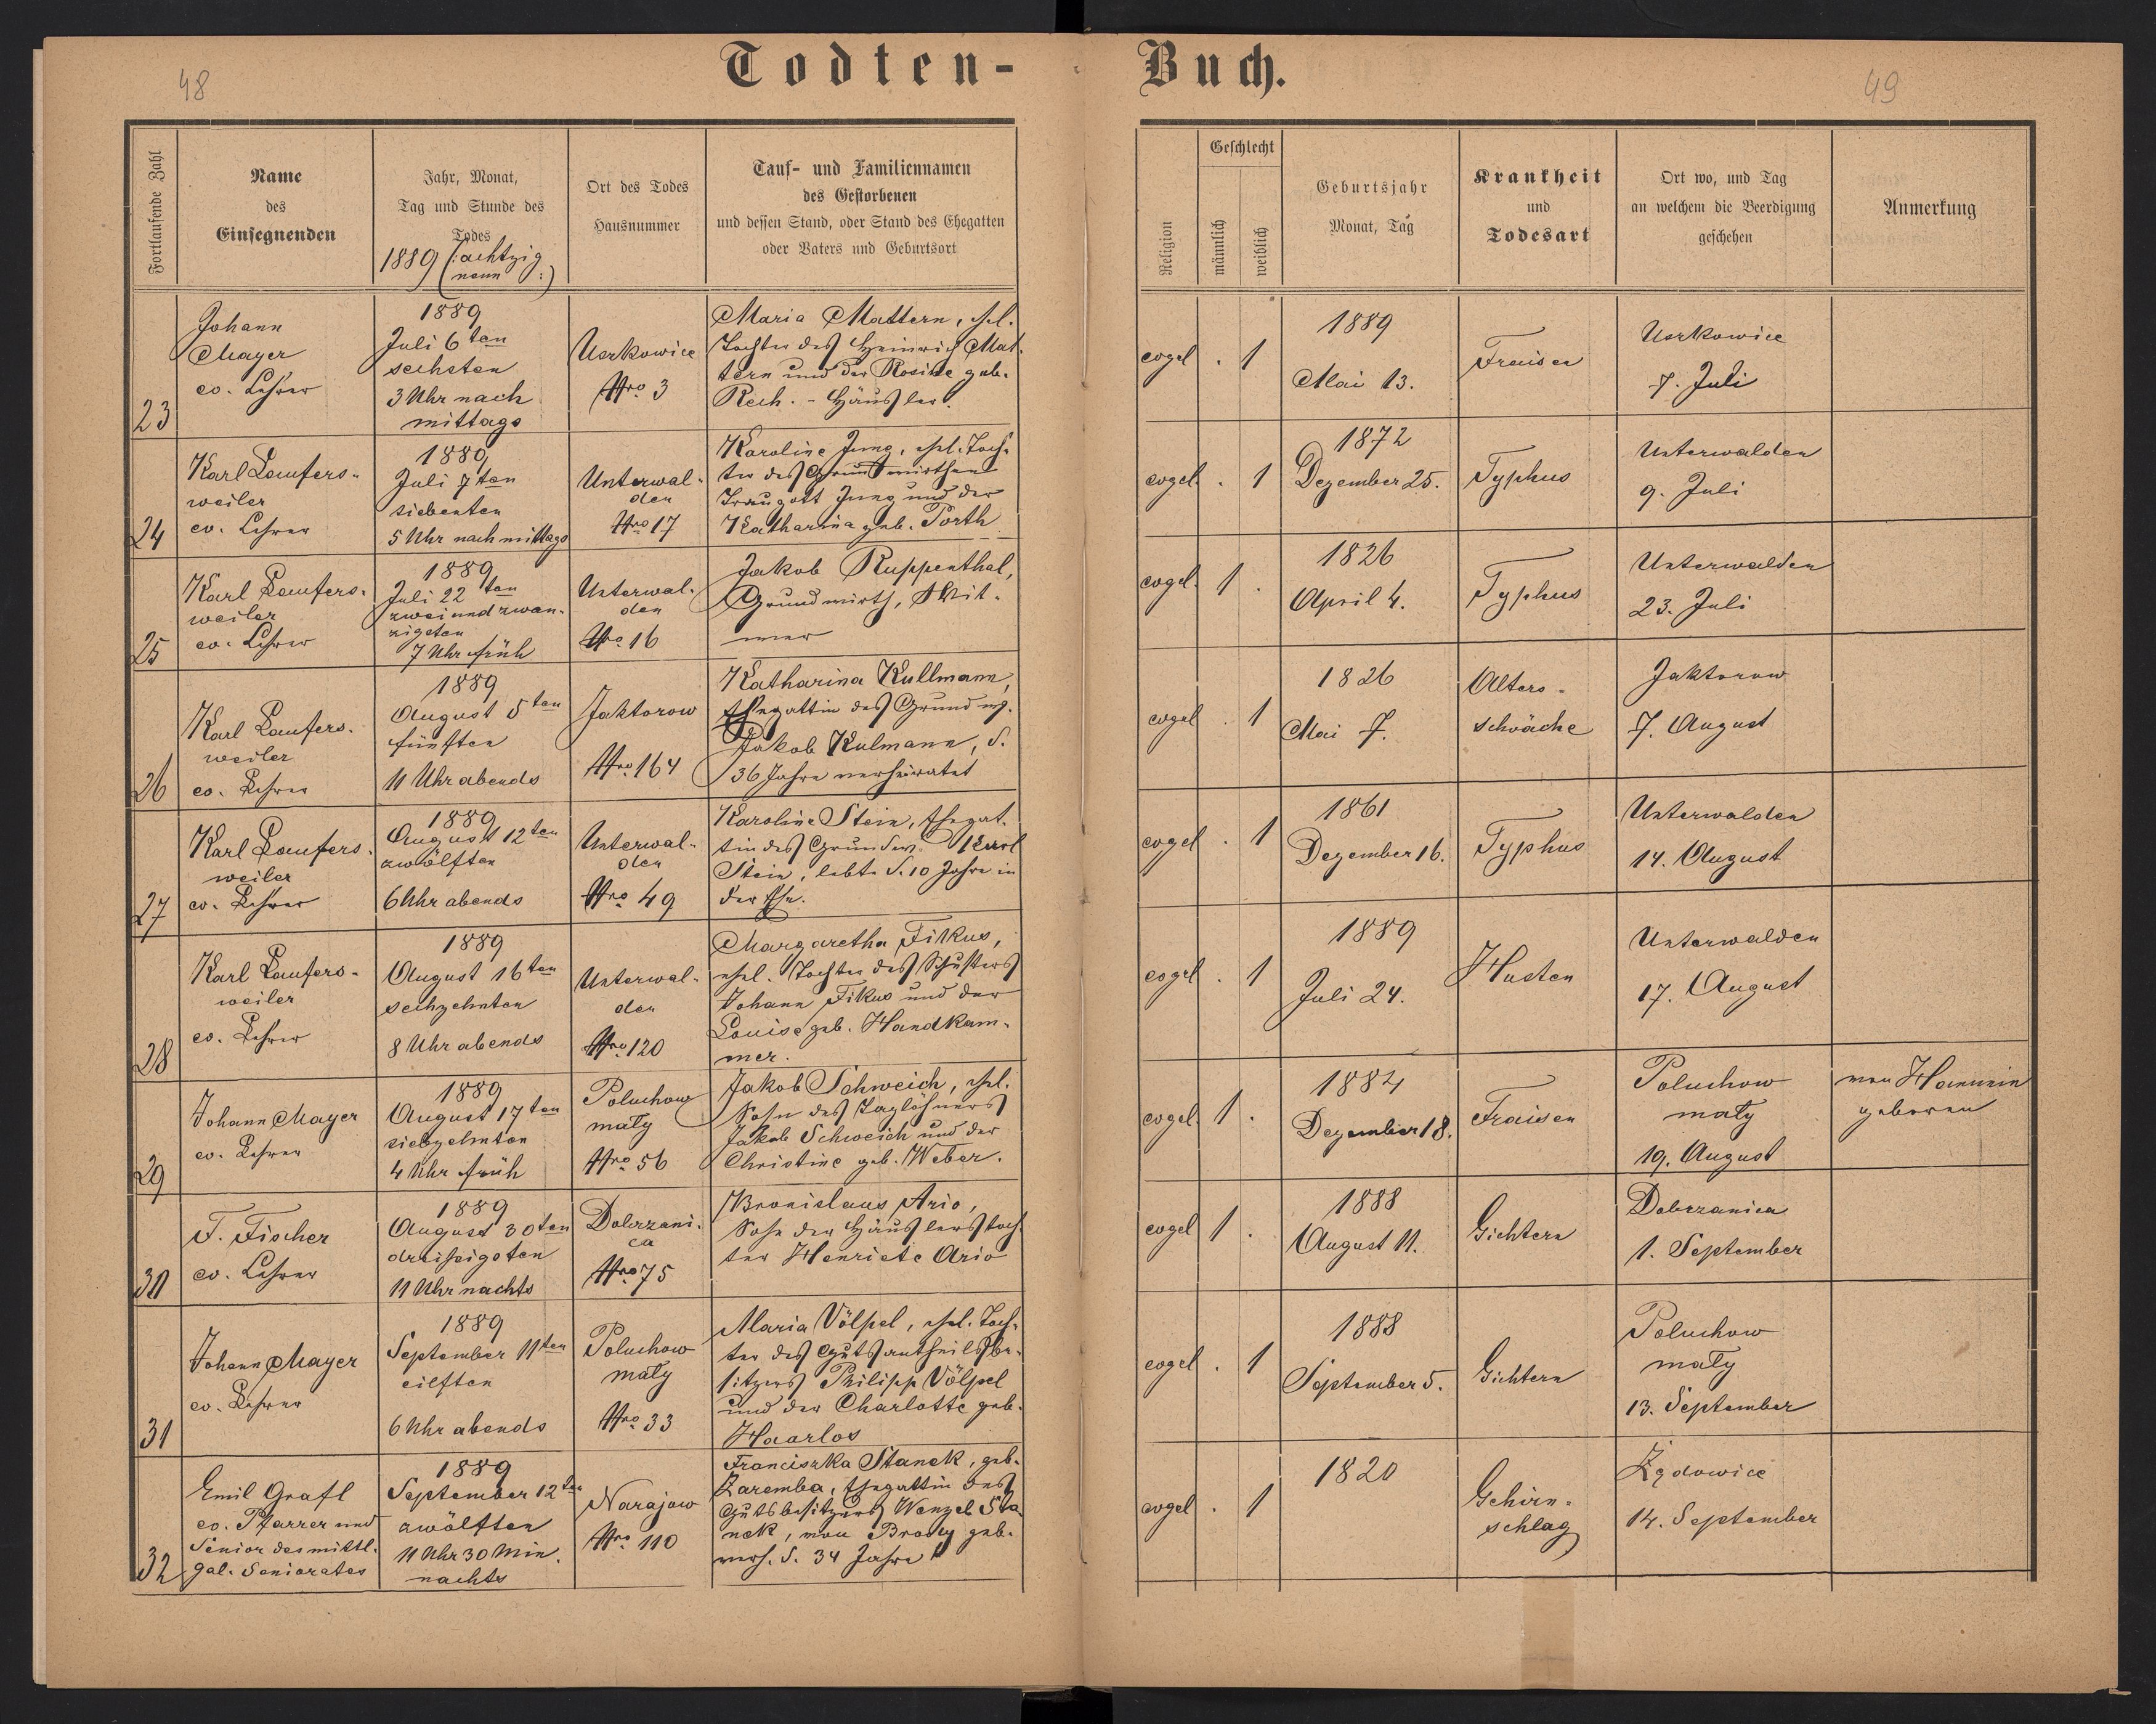 48
Todten-
Buch.
49
Fortlaufende Zahl
Name
des
Einsegnenden
Jahr, Monat,
Tag und Stunde des
Todes
1889 (:achtzig
neun :)
Ort des Todes
Hausnummer
Tauf- und Familiennamen
des Gestorbenen
und dessen Stand, oder Stand des Ehegatten
oder Vaters und Geburtsort
Religion
Geschlecht
männlich
weiblich
Geburtsjahr
Monat, Tag
Krankheit
und
Todesart
Ort wo, und Tag
an welchem die Beerdigung
geschehen
Anmerkung
23
Johann
Mayer
ev. Lehrer
1889
Juli 6ten
sechsten
3 Uhr nach
mittags
Uszkowice
Nro 3
Maria Mattern, ehl.
Tochter des Heinrich Mat-
tern und der Rosine geb.
Rech. - Häusler.
evgel
. 1
1889
Mai 13.
Fraisen
Uszkowice
7. Juli
24
Karl Laufers-
weiler
ev. Lehrer
1889
Juli 7ten
siebenten
5 Uhr nachmittags
Unterwal-
den
Nro 17
Karoline Jung, ehl. Toch-
ter des Grundwirthen
Traugott Jung und der
Katharina geb. Porth
evgel.
. 1
1872
Dezember 25.
Typhus
Unterwalden
9. Juli
25
Karl Laufers-
weiler
ev. Lehrer
1889
Juli 22ten
zweiundzwan-
zigsten
7 Uhr früh
Unterwal-
den
Nro 16
Jakob Ruppenthal,
Grundwirth, Wit-
wer
evgel.
1 .
1826
April 4.
Typhus
Unterwalden
23. Juli
26
Karl Laufers-
weiler
ev. Lehrer
1889
August 5ten
fünften
11 Uhr abends
Jaktorow
Nro 164
Katharina Kullmann,
Ehegattin des Grundw.
Jakob Kulmann, d.
36 Jahre verheiratet
evgel
. 1
1826
Mai 7.
Alters-
schwäche
Jaktorow
7. August
27
Karl Laufers-
weiler
ev. Lehrer
1889
August 12ten
zwölften
6 Uhr abends
Unterwal-
den
Nro 49
Karoline Stein, Ehegat-
tin des Grundw. Karl
Stein, lebte d. 10 Jahre in
der Ehe.
evgel
. 1
1861
Dezember 16.
Typhus
Unterwalden
14. August
28
Karl Laufers-
weiler
ev. Lehrer
1889
August 16ten
sechzehnten
8 Uhr abends
Unterwal-
den
Nro 120
Margaretha Fikus,
ehel. Tochter des Schusters
Johann Fikus und der
Louise geb. Handkam-
mer.
evgel
. 1
1889
Juli 24.
Husten
Unterwalden
17. August
29
Johann Mayer
ev. Lehrer
1889
August 17ten
siebzehnten
4 Uhr früh
Poluchow
maly
Nro 56
Jakob Schweich, ehl.
Sohn des Taglöhners
Jakob Schweich und der
Christine geb. Weber.
evgel.
1 .
1884
Dezember 18.
Fraisen
Poluchow
maly
19. August
von Hanunin
geboren
30
F. Fischer
ev. Lehrer
1889
August 30ten
dreißigsten
11 Uhr nachts
Dobrzani-
ca
Nro 75
Bronislaus Ario,
Sohn der Häuslerstoch-
ter Henriete Ario
evgel
1 .
1888
August 11.
Gichtern
Dobrzanica
1. September
31
Johann Mayer
ev. Lehrer
1889
September 11ten
eilften
6 Uhr abends
Poluchow
maly
Nro 33
Maria Völpel, ehel. Toch-
ter des Gutsantheilsbe-
sitzers Philipp Völpel
und der Charlotte geb.
Haarlos
evgel
. 1
1888
September 5.
Gichtern
Poluchow
maly
13. September
32
Emil Grafl
ev. Pfarrer und
Senior des mittl.
gal. Seniorates
1889
September 12ten
zwölften
11 Uhr 30 Min.
nachts
Narajow
Nro 110
Franciszka Stanek, geb.
Zaremba, Ehegattin des
Gutsbesitzers Wenzel Sta
nek, von Brody geb.
verh. d. 34 Jahre
evgel
. 1
1820
Gehirn-
schlag
Żędowice
14. September